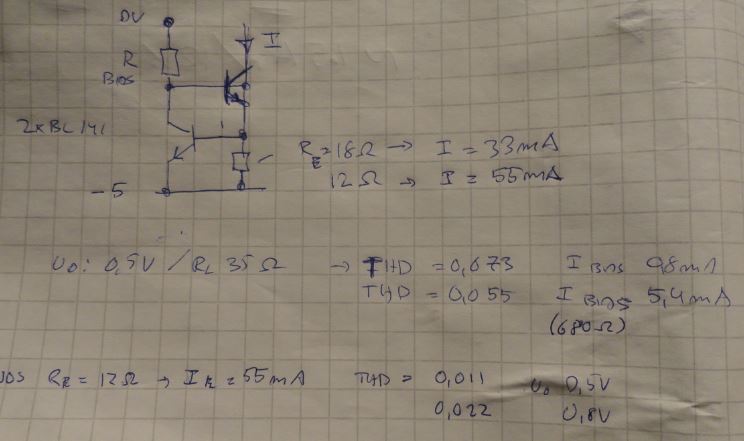 0V
I
R
BIAS
2xBC141
RE = 18Ω → I = 33mA
12Ω → I = 55mA
-5
U0: 0,5V / RL 35Ω → THD = 0,073 I BIAS 0,8mA
THD = 0,055 I BIAS 5,4mA
(680Ω)
RE = 12Ω → IE = 55mA THD = 0,011 U0 0,5V
0,022 0,8V